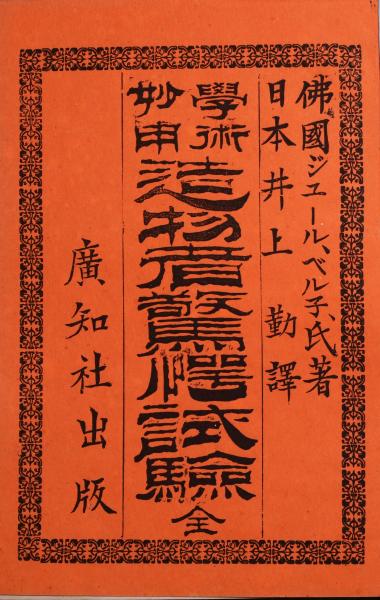 佛國ジュール、ベル子、氏著
日本井上勤譯
學術
妙用
造物者驚愕試驗 全
廣知社出版